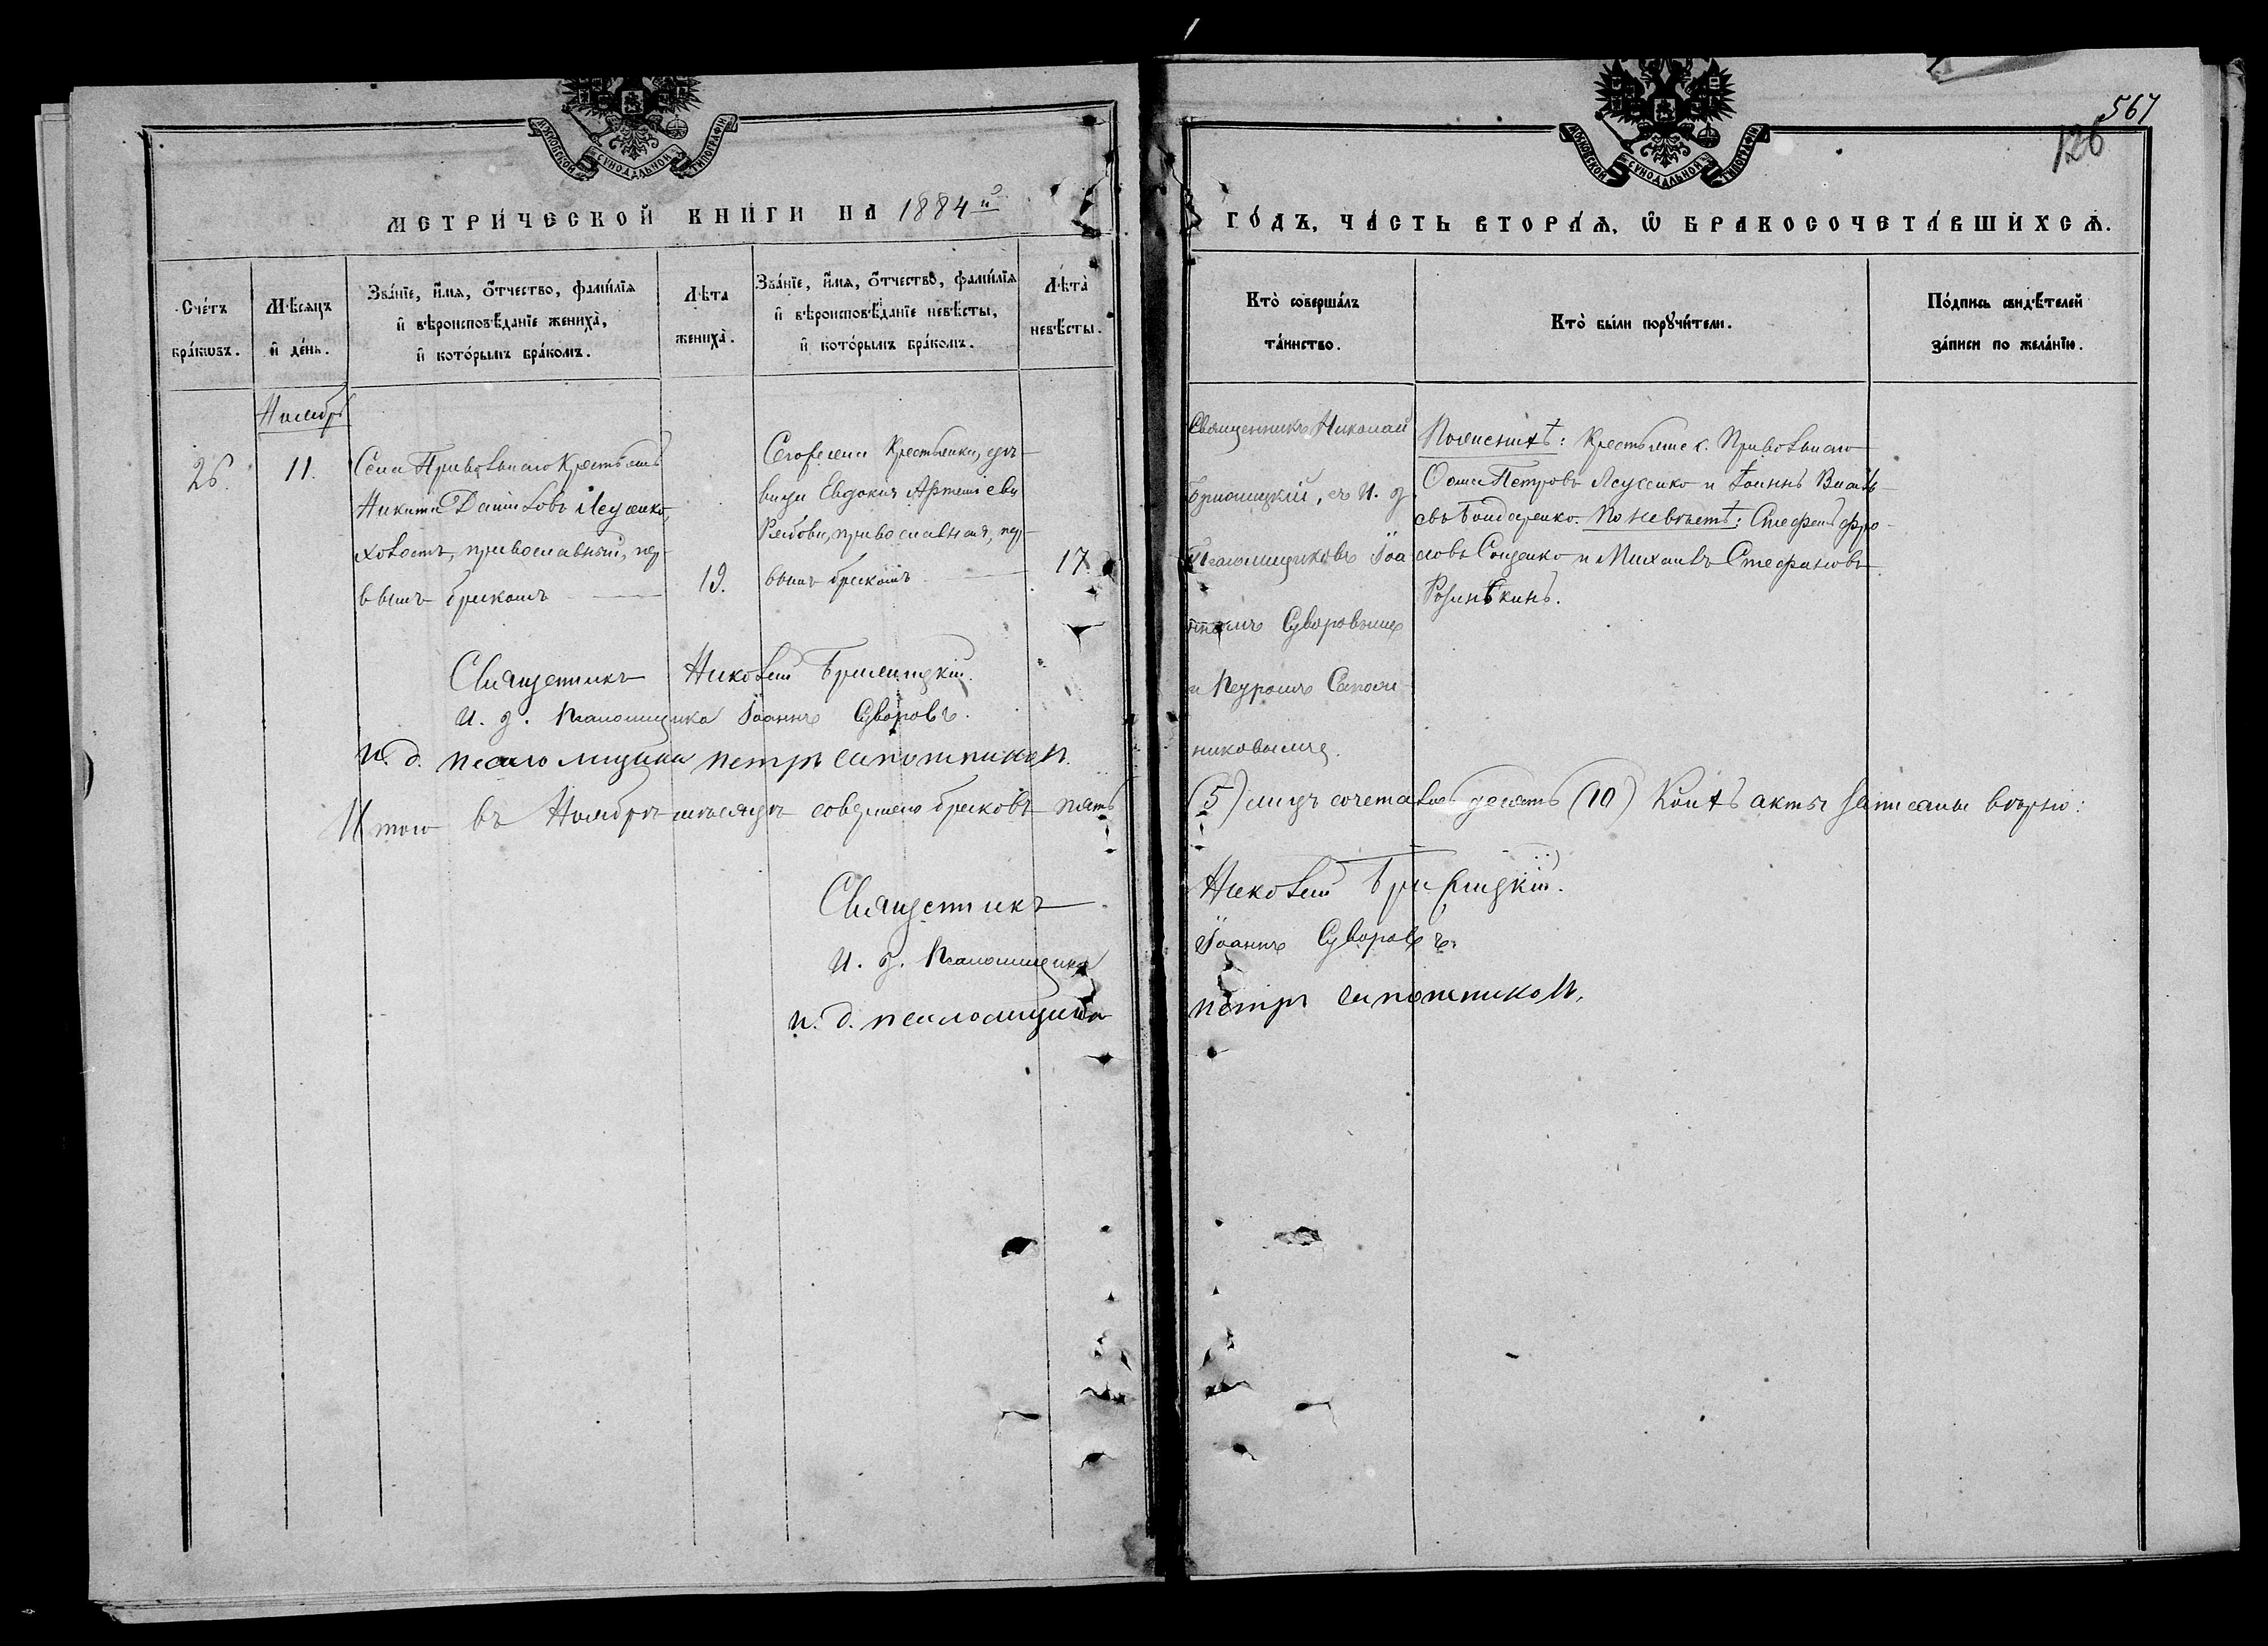 567
126
МОСКОВСКОЙ СѴНОДАЛЬНОЙ ТИПОГРАФІИ
МОСКОВСКОЙ СѴНОДАЛЬНОЙ ТИПОГРАФІИ
МЕТРИ́ЧЕСКОЙ КНИ́ГИ НА 1884й
ГО́ДЪ, ЧА́СТЬ ВТОРА́Ѧ, Ѡ҆ БРАКОСОЧЕТА́ВШИХСѦ.
Сче́тъ
бра́ковъ.
Мѣ́сяцъ
и҆ де́нь.
Зва́нїе, и҆́мя, ѻ҆́тчество, фами́лїя
и҆ вѣроисповѣ́данїе жениха̀,
и҆ кото́рымъ бра́комъ.
Лѣта
жениха̀.
Зва́нїе, и҆́мя, ѻ҆́тчество, фами́лїя
и҆ вѣроисповѣ́данїе невѣ́сты,
и҆ кото́рымъ бра́комъ.
Лѣта̀
невѣ́сты.
Кто̀ соверша́лъ
та́инство.
Кто̀ бы́ли порꙋчи́тели.
По́дпись свидѣ́телей
за́писи по жела́нїю.
Ноябрь
26.
11.
Села Привольнаго Крестьянъ
Никита Даниловъ
холостъ, православный, пер-
вымъ бракомъ
19.
Крестьянки, дѣ-
вица Евдокія Артеміева
Рябова, православная, пер-
вымъ бракомъ
17.
Священникъ Николай
съ И. д.
Псаломщиковъ Іоа
нномъ Суворовымъ
и Петромъ Сапож
никовымъ.
По женихѣ: Крестьяне с. Привольнаго
Ѳома Петровъ и Іоаннъ Василь-
евъ Бондаренко. По невѣстѣ: Стефанъ Фро-
ловъ и Михаилъ Стефановъ
Священникъ Николай
И. д. Псаломщика Іоаннъ Суворовъ.
И. д. псаломщика петръ сапожниковъ.
Итого въ Ноябрѣ мѣсяцѣ совершено браковъ пять
(5) лицъ сочеталось десять (10) Коихъ акты записаны вѣрно:
Священникъ Николай
И. д. Псаломщика Іоаннъ Суворовъ.
и. д. псаломщика петръ сапожниковъ.